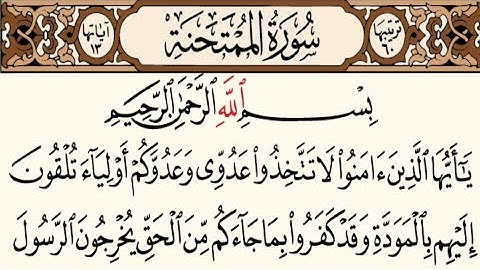 ترتيبها ٦٠
سُورَةُ الْمُمْتَحنَةِ
آياتها ١٣
بِسْمِ اللَّهِ الرَّحْمَٰنِ الرَّحِيمِ
يَٰٓأَيُّهَا الَّذِينَ ءَامَنُوا۟ لَا تَتَّخِذُوا۟ عَدُوِّى وَعَدُوَّكُمْ أَوْلِيَآءَ تُلْقُونَ
إِلَيْهِم بِالْمَوَدَّةِ وَقَدْ كَفَرُوا۟ بِمَا جَآءَكُم مِّنَ الْحَقِّ يُخْرِجُونَ الرَّسُولَ